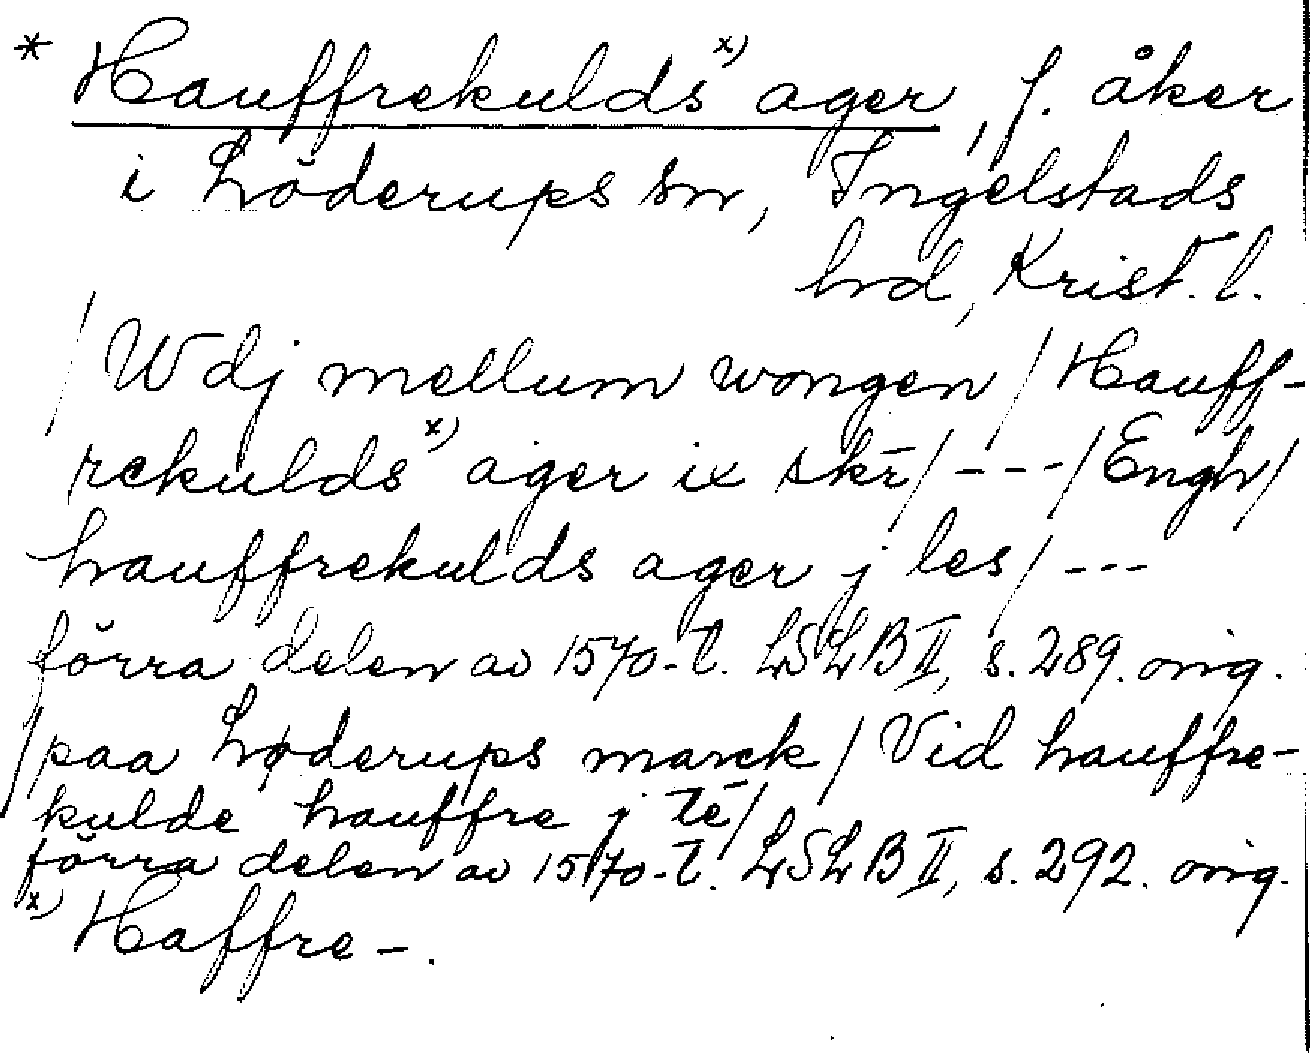 * Hauffrekulds x) ager, f. åker
i Löderups sn, Ingelstads
hd, Krist. l.
/ Wdj mellum wongen / Hauff-
rekulds x) ager ix skr̄ / --- / Engh /
hauffrekulds ager j les / ---
förra delen av 1570-t. LSLB II, s. 289. orig.
/ paa Løderups marck / Vid hauffre-
kulde hauffre j té /
förra delen av 1570-t. LSLB II, s. 292. orig.
x) Haffre-.